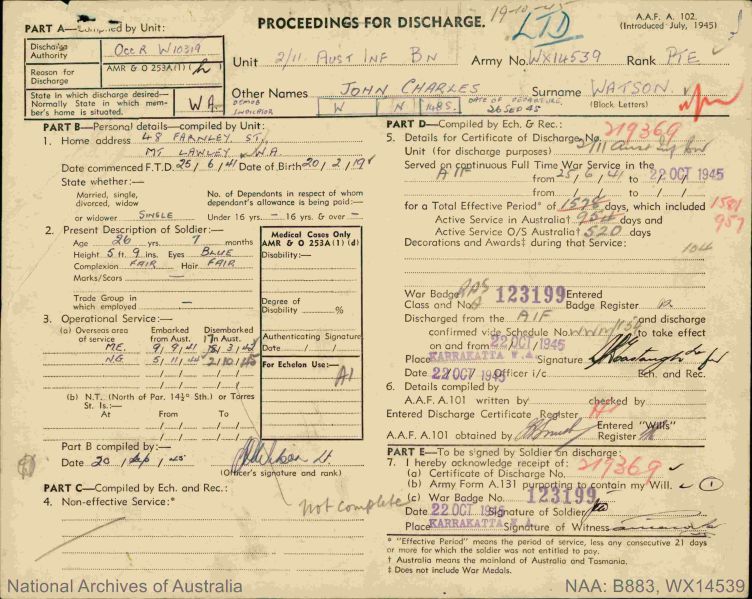 19-10-45
PROCEEDINGS FOR DISCHARGE.
LTD
A.A.F. A. 102.
(Introduced July, 1945)
PART A—Compiled by Unit:
Discharge Authority
OCCR W10319
Reason for Discharge
AMR & O 253A(1) (h)
State in which discharge desired—Normally State in which member's home is situated.
W A
Unit 2/11 AUST INF BN Army No. WX14539 Rank PTE
Other Names JOHN CHARLES Surname WATSON
(Block Letters)
DEMOB INDICATOR W N 148S. DATE OF DEPARTURE 26 SEP 45
PART B—Personal details—compiled by Unit:
1. Home address 48 FARNLEY ST,
MT LAWLEY, W.A.
Date commenced F.T.D. 25/6/41 Date of Birth 20/2/19
State whether:—
Married, single, divorced, widow
or widower SINGLE
No. of Dependants in respect of whom dependant's allowance is being paid:—
Under 16 yrs. — 16 yrs. & over —
2. Present Description of Soldier:—
Age 26 yrs. 7 months
Height 5 ft. 9 ins. Eyes BLUE
Complexion FAIR Hair FAIR
Marks/Scars —
Trade Group in which employed —
Medical Cases Only
AMR & O 253A(1) (d)
Disability:—
Degree of Disability %
Authenticating Signature
Date / /
For Echelon Use:—
A1
3. Operational Service:—
(a) Overseas area of service
Embarked from Aust.
Disembarked in Aust.
M.E. 9/9/41 3/43
N.G. 5/11/44 2/10/45
(b) N.T. (North of Par. 14½° Sth.) or Torres St. Is.:—
At From To
Part B compiled by:—
Date 20/Sep/45
(Officer's signature and rank)
PART C—Compiled by Ech. and Rec.:
4. Non-effective Service:*
Not complete
PART D—Compiled by Ech. & Rec.:
5. Details for Certificate of Discharge No. 219369
Unit (for discharge purposes) 2/11 Aust Inf Bn
Served on continuous Full Time War Service in the
AIF from 25/6/41 to 22 OCT 1945
from / / to / /
for a Total Effective Period* of 1578 days, which included 1581
Active Service in Australia† 954 days and 957
Active Service O/S Australia† 520 days
Decorations and Awards‡ during that Service: 104
War Badge RAS
Class and No. A 123199 Entered
Badge Register
Discharged from the AIF and discharge
confirmed vide Schedule No. to take effect
on and from 22 OCT 1945
Place KARRAKATTA W.A. Signature
Date 22 OCT 1945 Officer i/c Ech. and Rec.
6. Details compiled by
A.A.F. A.101 written by checked by
Entered Discharge Certificate Register
A.A.F. A.101 obtained by Entered "Wills" Register
PART E—To be signed by Soldier on discharge:
7. I hereby acknowledge receipt of:
(a) Certificate of Discharge No. 219369
(b) Army Form A.131 purporting to contain my Will. 1
(c) War Badge No. 123199
Date 22 OCT 1945 Signature of Soldier
Place KARRAKATTA W.A. Signature of Witness
* "Effective Period" means the period of service, less any consecutive 21 days
or more for which the soldier was not entitled to pay.
† Australia means the mainland of Australia and Tasmania.
‡ Does not include War Medals.
National Archives of Australia
NAA: B883, WX14539